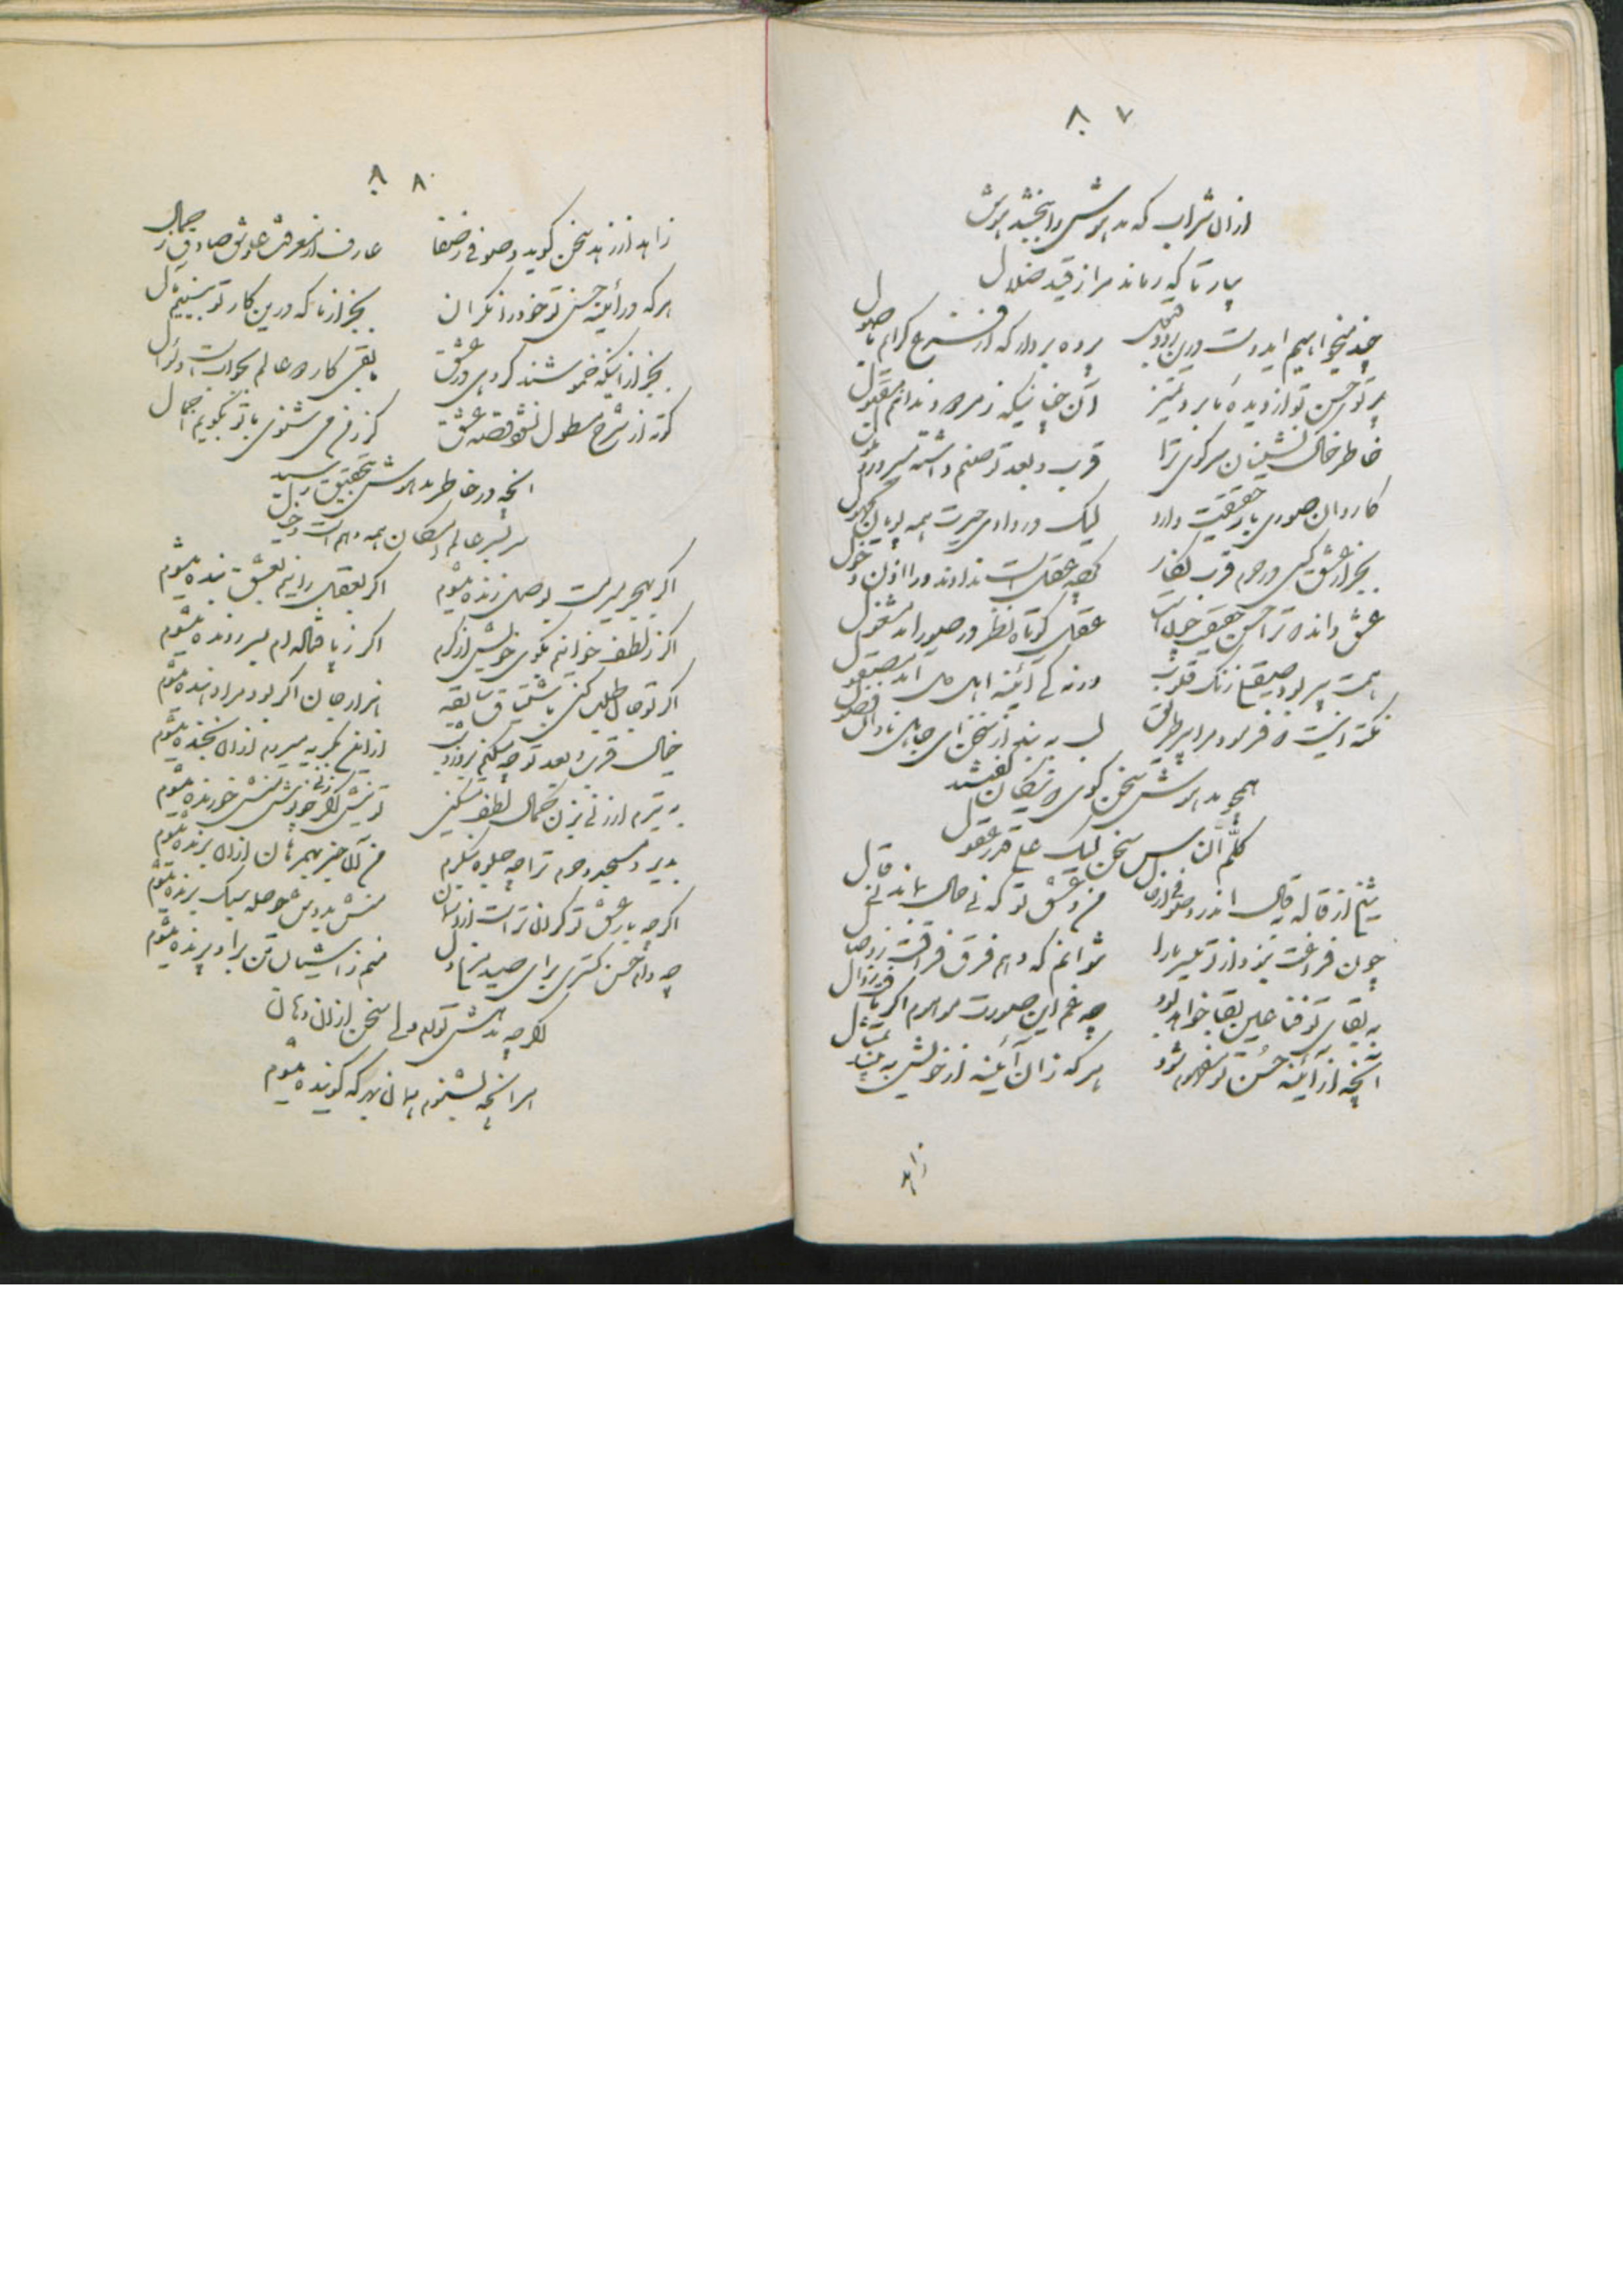 ۸۷
ازان شراب که مدهوش را ببخشد هوش
بیار تا که رهاند مرا ز قید ضلال
چند میخواهیم ایدوست درین پرده
پرده بردار که از فرع گرایم باصول
پرتو حسن تو از دیده ما برد تمیز
آن چنانیکه ز مردود ندانم مقبول
خاطر خاک نشینان سر کوی ترا
قرب و بعد تو صنم داشته مسرور و ملول
کاروان صوری بار حقیقت دارد
لیک در وادی حیرت همه
بجز از عشق کسی در حرم قرب
عقل است ندادند ورا اذن دخول
عشق داند که ترا حسن حقیقی
عقل کوتاه نظر در صور آمد مشغول
همت پیر بود صیقل زنگ قلوب
ورنه کی آئینه اهل دل آمد مصقول
نکته اینست که فرمود مرا پیر طریق
لب به بند از سخن ای جاهل نادان فضول
همچو مدهوش سخن گوی که نیکان گفتند
کلّم الناس سخن لیک علی قدر عقول
شیخ از قاله و قال اندر و صوفی از حال
من و عشق تو که نی حال بماند نی قال
چون فراغت نبود از تو میسر ما را
نتوانم که دهم فرق فراقت ز وصال
به بقای تو فنا عین بقا خواهد بود
چه غم این صورت موهوم اگر یافت زوال
آنچه از آئینه حسن تو مفهوم شود
هر که زان آئینه از خویش به بیند تمثال
زاهد
۸۸
زاهد از زهد سخن گوید و صوفی ز صفا
عارف از معرفت و عاشق صادق ز جمال
هر که در آئینه حسن تو خود را نگران
بجز از ما که درین کار تو بینیم
بجز از اینکه خموشند گروهی در عشق
مابقی کار دو عالم بجوابست و سؤال
گرنه از شرح مطول نشود قصه عشق
گر ز من می شنوی با تو بگویم اجمال
آنچه در خاطر مدهوش بتحقیق رسید
سر بسر عالم امکان همه وهم است و خیال
اگر بهجر میرمت بوصل زنده میشوم
اگر بعقل رانیم بعشق بنده میشوم
اگر ز لطف خوانیم بکوی خویش از کرم
اگر ز پا فتاده ام بسر دونده میشوم
اگر تو جان طلب کنی باشتیاق سابقه
هزار جان اگر بود مرا دهنده میشوم
خیال قرب و بعد تو چه میکنم بروز و شب
از این بگریه میروم از آن بخنده میشوم
به تیرم ار زنی بزن کمال لطف میکنی
تو نیش گر زنی چو نوش منش خورنده میشوم
بدیر و مسجد و حرم ترا چه جلوه بنگرم
من آن خبر بهمرهان ازان برنده میشوم
اگرچه بار عشق تو گران تر است از جهان
منش بدوش حوصله سبک برنده میشوم
چه دام حسن گستری برای صید مرغ دل
منم ز آشیان تن برا و پرنده میشوم
اگرچه مدهش توام ولی سخن ازان دهان
هر آنچه بشنوم همان بهر که گوینده میشوم